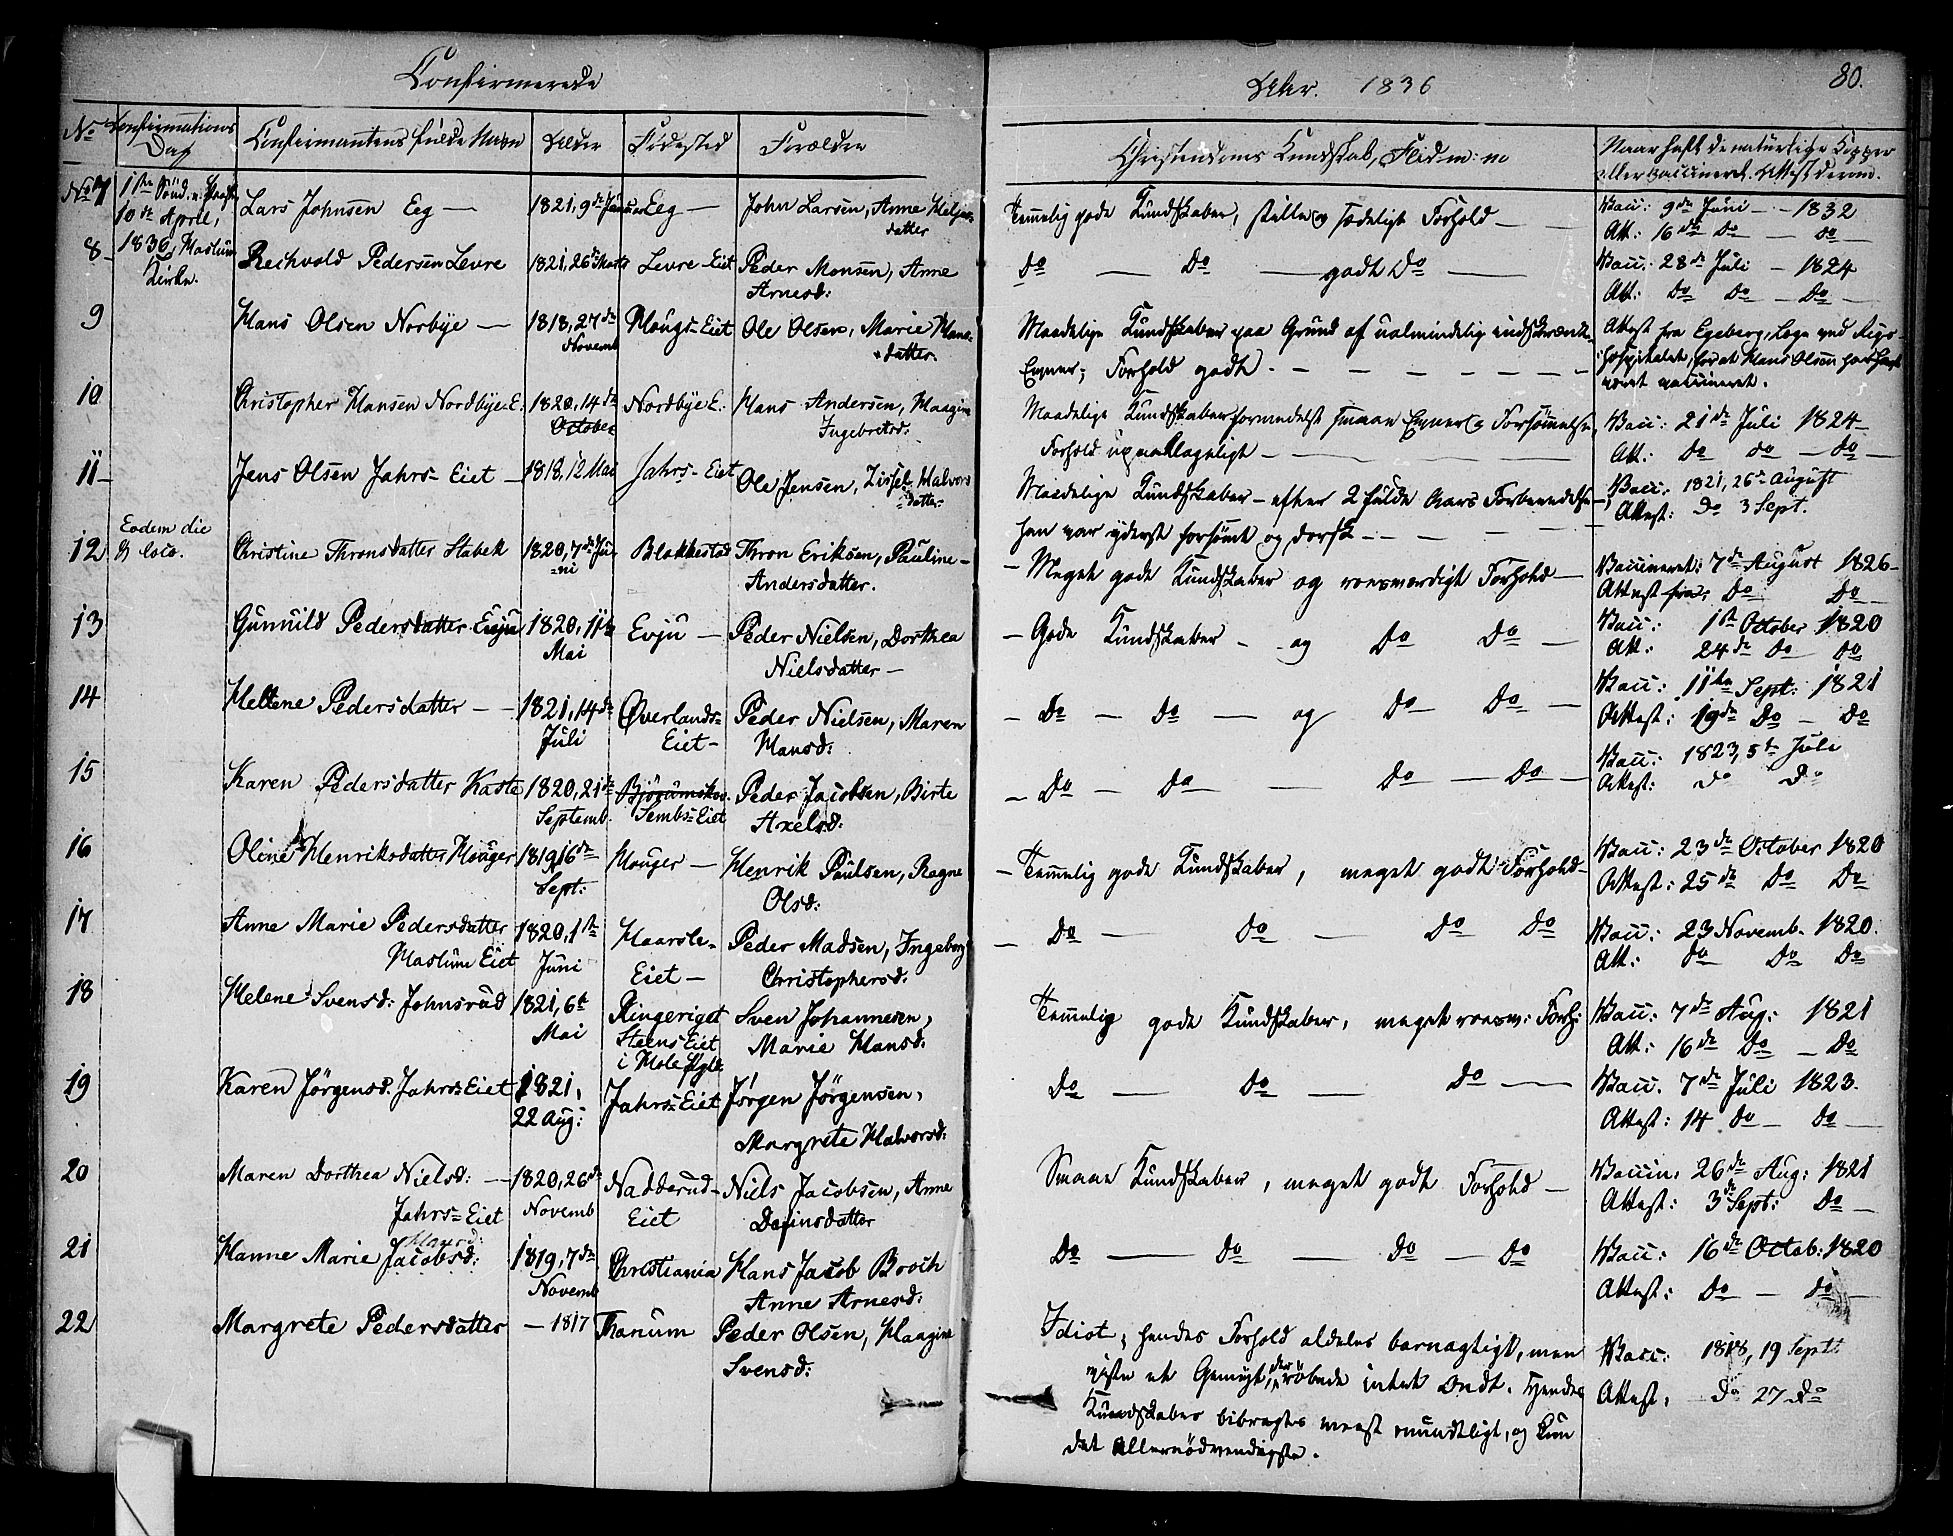 Confirmerede
Aar. 1836
80.
No Confirmations Dag
Confirmantens fulde Navn
Alder
Fødested
Forældre
Christendoms Kundskab, Flid m: m
Naar havt de naturlige Kopper
eller vaccineret. Attest derom.
No 7 1ste Sønd. 10de April, Lars Johnsen Eeg — 1821, 9de Januar Eeg — John Larsen, Anne Helges-
datter
Temmelig gode Kundskaber, stille og sædeligt Forhold —
Vacc: 9de Juni — 1832
Att: 16de Do — Do —
8 1836, Haslum Kirke. Reihvold Pedersen Levre 1821, 26de Marts Levre-Eiet Peder Monsen, Anne
Arnesd:
Do — Do — godt Do —
Vacc: 28de Juli — 1824
Att: Do Do — Do —
9 Hans Olsen Norbye — 1818, 27de Novemb Hougs-Eiet Ole Olsen, Marie Hans-
datter.
Maadelige Kundskaber paa Grund af ualmindelig indskrænkte
Evner; Forhold godt. — — —
Attest fra Egeberg, Læge ved Rigs-
hospitalet, for at Hans Olsen har havt
været vaccineret.
10 Christopher Hansen Nordbye E. 1820, 14de October Nordbye E: Hans Andersen, Maagine
Ingebretsd:
Maadelige Kundskaber formedelst smaae Evner og Forsømmelse,
Forhold upaaklageligt —
Vacc: 21de Juli 1824 —
Att: Do Do — Do —
11 — Jens Olsen Jahrs-Eiet — 1818, 12 Mai Jahrs-Eiet Ole Jensen, Zissel Halvors
Datter —
Maadelige Kundskaber — efter 2 fulde Aars Forberedelse —
han var yderst forsømt og dorsk — — —
Vacc: 1821, 26de August
Attest: Do 3 Sept.
Eodem die & loco.
12 Christine Thronsdatter Stabek 1820, 7de Ju-
ni Blakkestad Thron Eriksen, Pauline —
Andersdatter.
— Meget gode Kundskaber og roesværdigt Forhold —
Vaccineret: 7de August 1826 —
Attest fra, Do Do —
13 Gunnild Pedersdatter Evju 1820, 11te Mai Evju — Peder Nielsen, Dorthea
Nielsdatter —
— Gode Kundskaber — og Do Do —
Vacc: 1ste October 1820
Att: 24de Do Do
14 Hellene Pedersdatter — 1821, 14de Juli Øverlands-
Eiet — Peder Nielsen, Maren
Hansd:
— Do — Do — og Do Do —
Vacc: 11te Sept: 1821
Attest: 19de Do — Do
15 Karen Pedersdatter Kaste 1820, 21de Septemb. Bjørumskov.
Sembs-Eiet Peder Jacobsen, Birte
Axelsd:
— Do — Do — Do — Do —
Vacc: 1823, 5te Juli
Attest: Do Do
16 Oline Henriksdatter Houger 1819, 16de Sept: Houger — Henrik Paulsen, Ragne
Olsd:
— Temmelig gode Kundskaber, meget godt Forhold —
Vacc: 23de October 1820
Attest: 25de Do Do
17 Anne Marie Pedersdatter
Haslum Eiet 1820, 1ste Juni Haarsle-
Eiet — Peder Madsen, Ingeborg
Christophersd:
— Do — Do — Do Do
Vacc: 23 Novemb. 1820.
Att: Do Do Do
18 Helene Svensd: Johnsrud 1821, 6te Mai Ringeriget
Steens Eiet
i Hole Pgld. Sven Johannesen,
Marie Hansd:
Temmelig gode Kundskaber, meget roesv: Forh:
Vacc: 7de Aug: 1821
Att: 16de Do — Do
19 Karen Jørgensd. Jahrs-Eiet 1821, 22 Aug: Jahrs-Eiet Jørgen Jørgensen,
Margrete Halvorsd:
Do — Do — Do —
Vacc. 7de Juli 1823.
Attest: 14 Do — Do —
20 Maren Dorthea Nielsd: —
Jahrs-Eiet 1820, 26de Novemb Nadderud-
Eiet Niels Jacobsen, Anne
Dafinsdatter
Smaae Kundskaber, meget godt Forhold —
Vaccin: 26de Aug: 1821
Attest: 3de Sept: Do —
21 Hanne Marie Jacobsd:
Hansd: 1819, 7de Novemb Christiania Hans Jacob Broch
Anne Arnesd:
Do — Do — Do — Do
Vacc: 16de Octob: 1820
Attest: Do — Do —
22 Margrete Pedersdatter — 1817 Thanum Peder Olsen, Maagine
Svensd:
Idiot; hendes Forhold aldeles barnagtigt, men
viste et Gemyt, der røbede intet Ondt. Hendes
Kundskaber bibragtes meest mundtligt, og kun
det Allernødvendigste.
Vacc: 1818, 19 Sept:
Attest, Do 27 Do